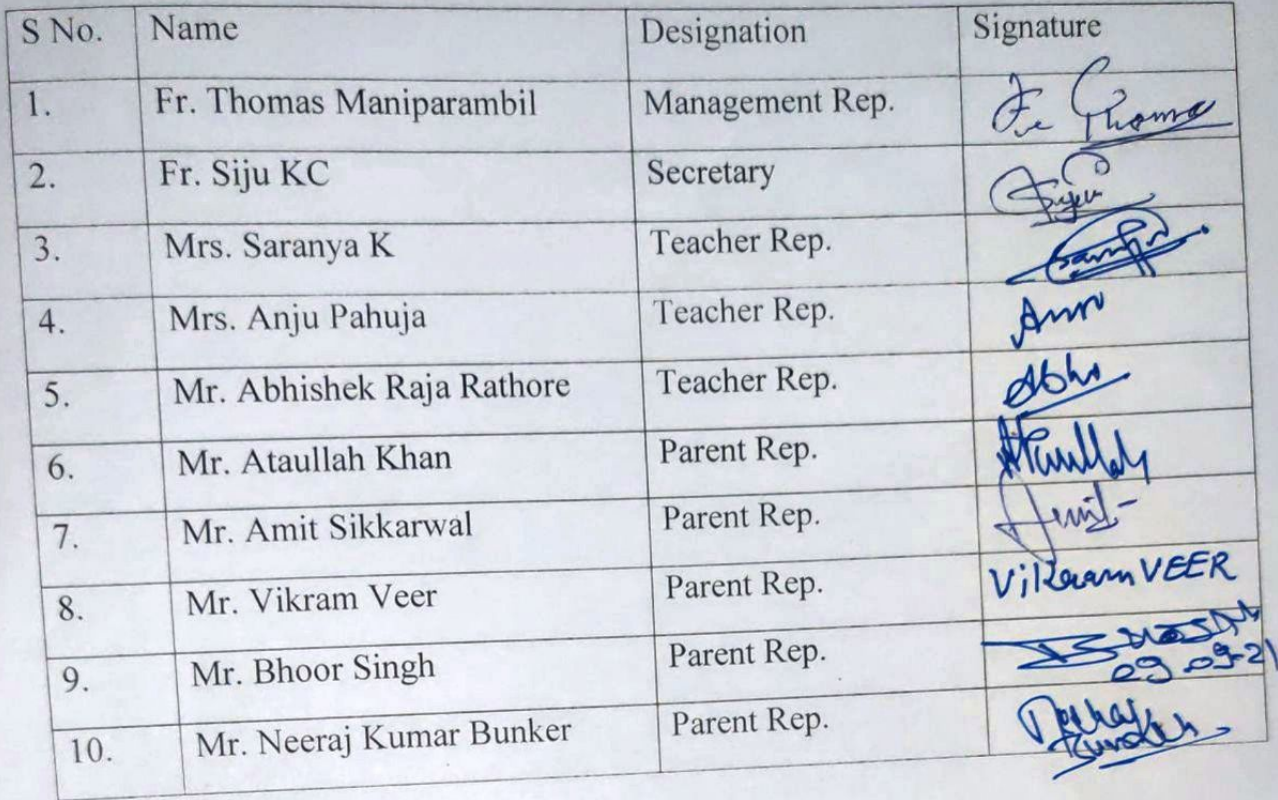 S No. Name Designation Signature
1. Fr. Thomas Maniparambil Management Rep. Fr Thomas
2. Fr. Siju KC Secretary Siju
3. Mrs. Saranya K Teacher Rep.
4. Mrs. Anju Pahuja Teacher Rep.
5. Mr. Abhishek Raja Rathore Teacher Rep. Abhi
6. Mr. Ataullah Khan Parent Rep. Ataullah
7. Mr. Amit Sikkarwal Parent Rep. Amit
8. Mr. Vikram Veer Parent Rep. Vikram VEER
9. Mr. Bhoor Singh Parent Rep.
09-09-21
10. Mr. Neeraj Kumar Bunker Parent Rep. Neeraj